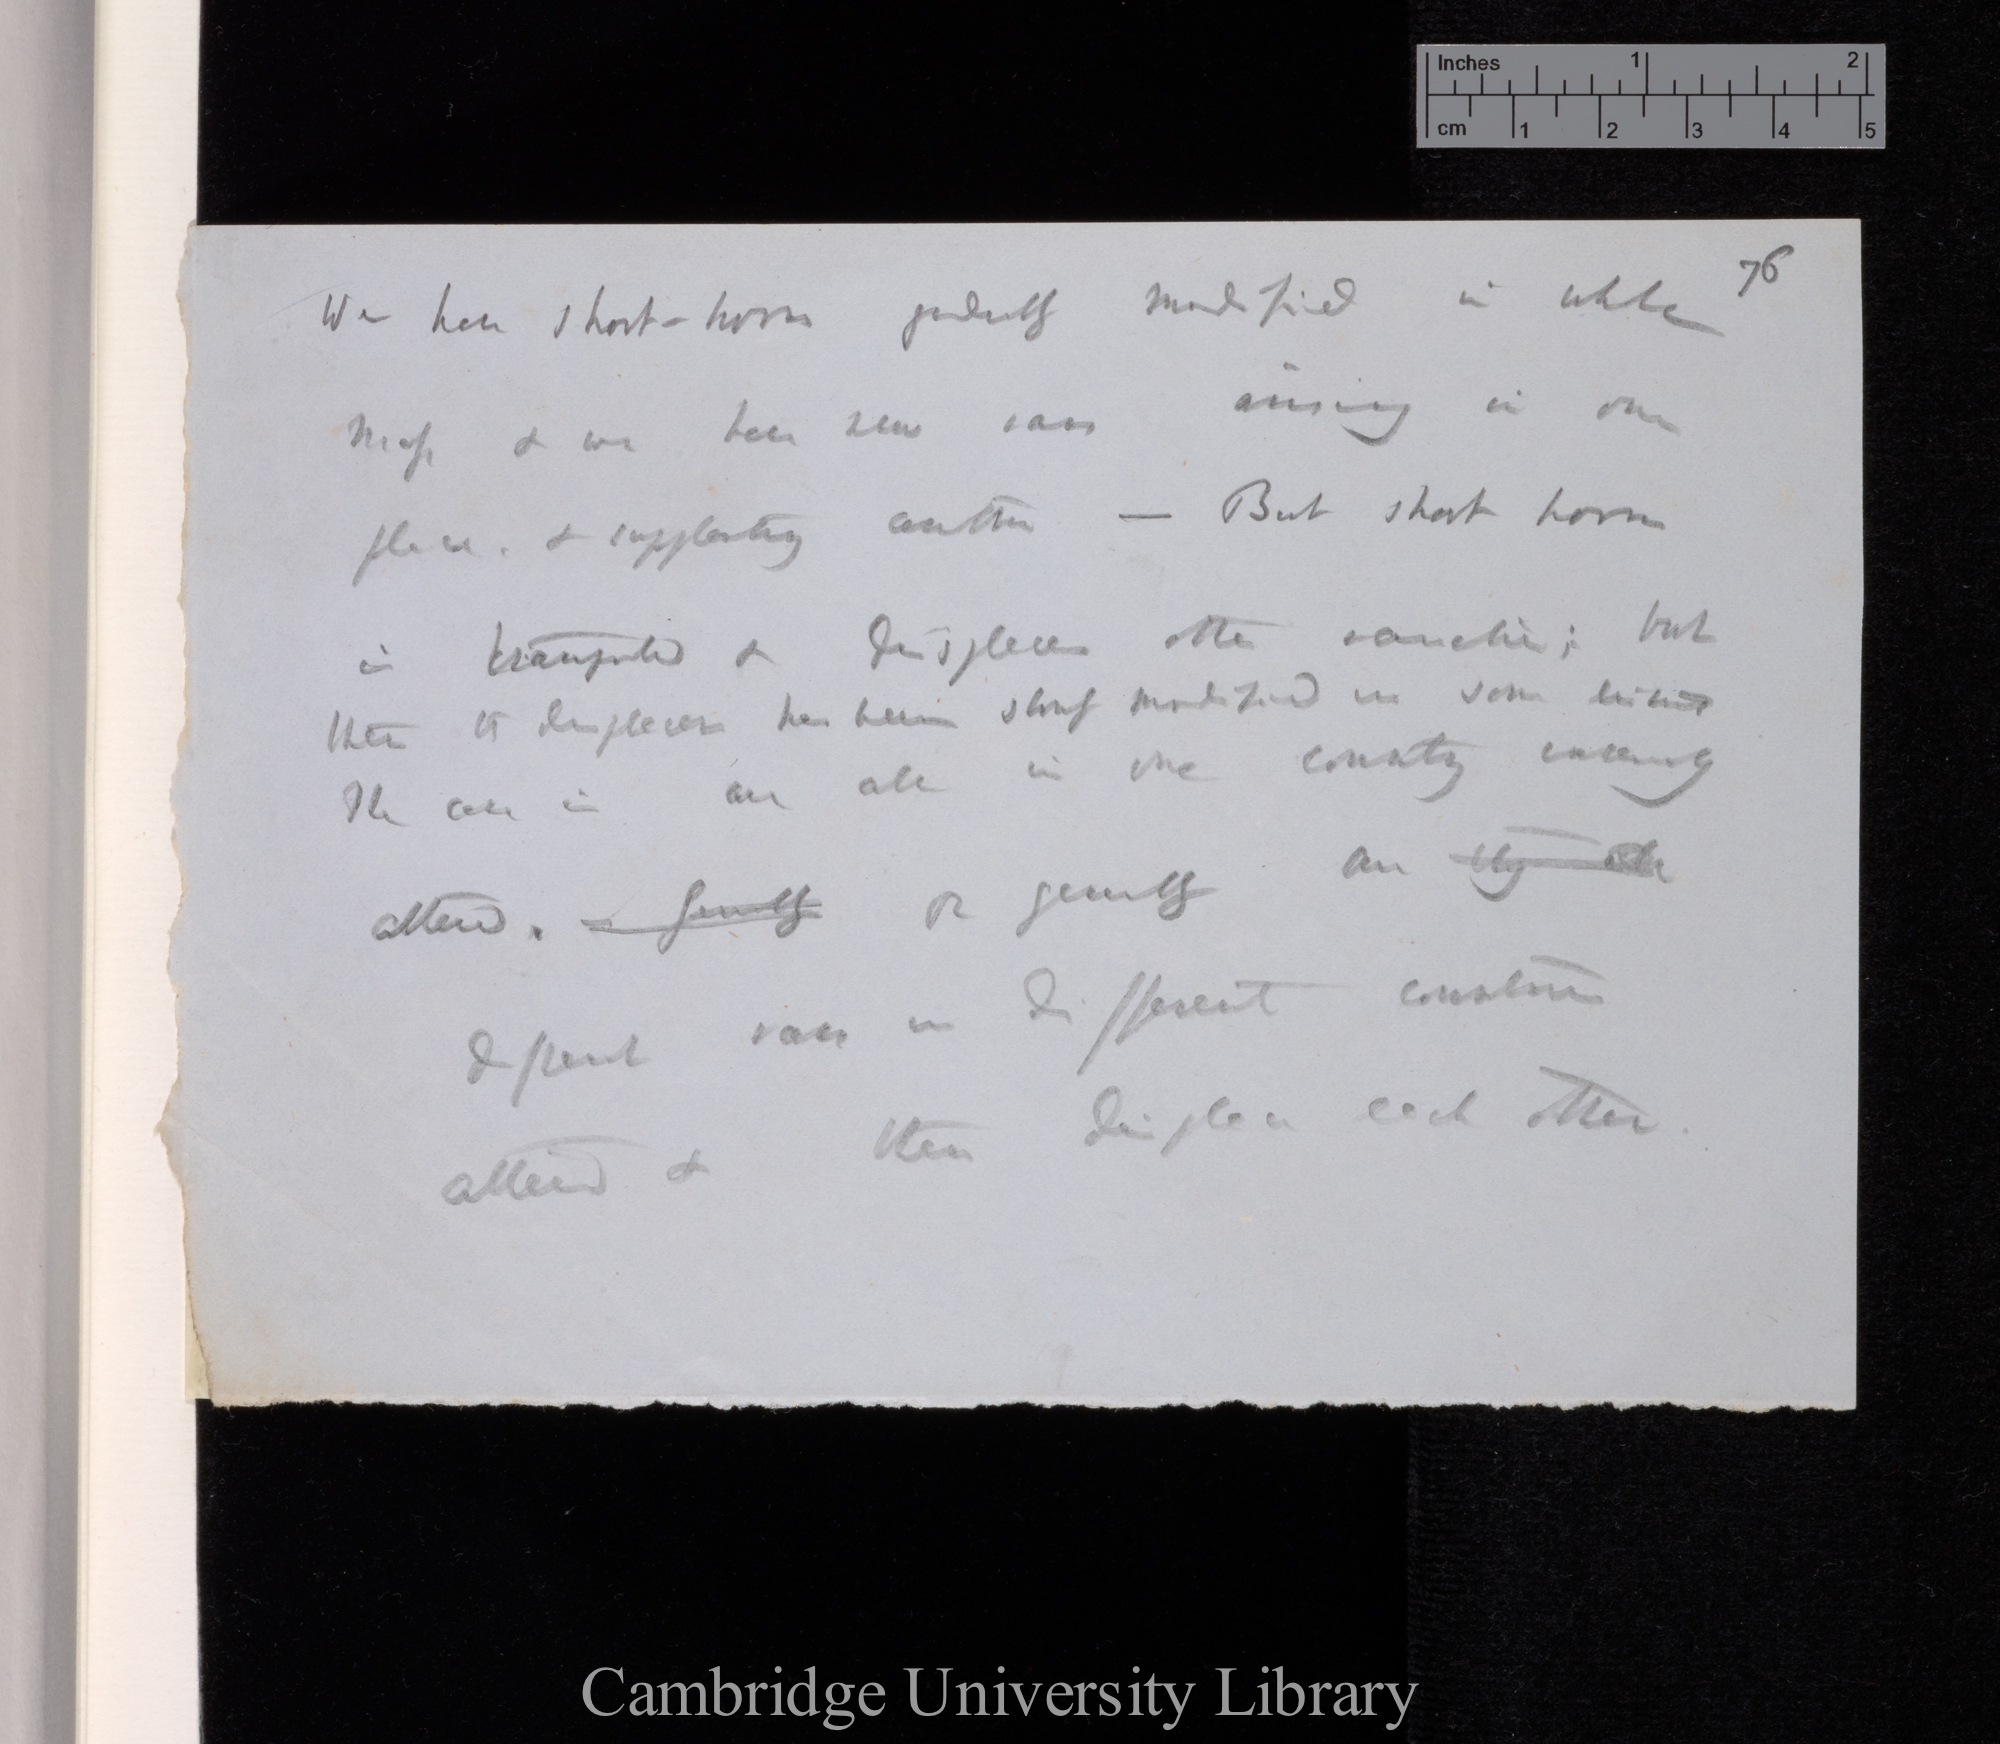 76
We have short-horns gradually modified in whole
mass & we have new races arising in one
place. & supplanting another — But short horns
is transported & displaces other varieties; but
then it displaces has been slowly modified in some
The case is are all in one country
altered. - generally or generally are
different races in different countries
altered & then displace each other.
Inches 1 2
cm 1 2 3 4 5
Cambridge University Library